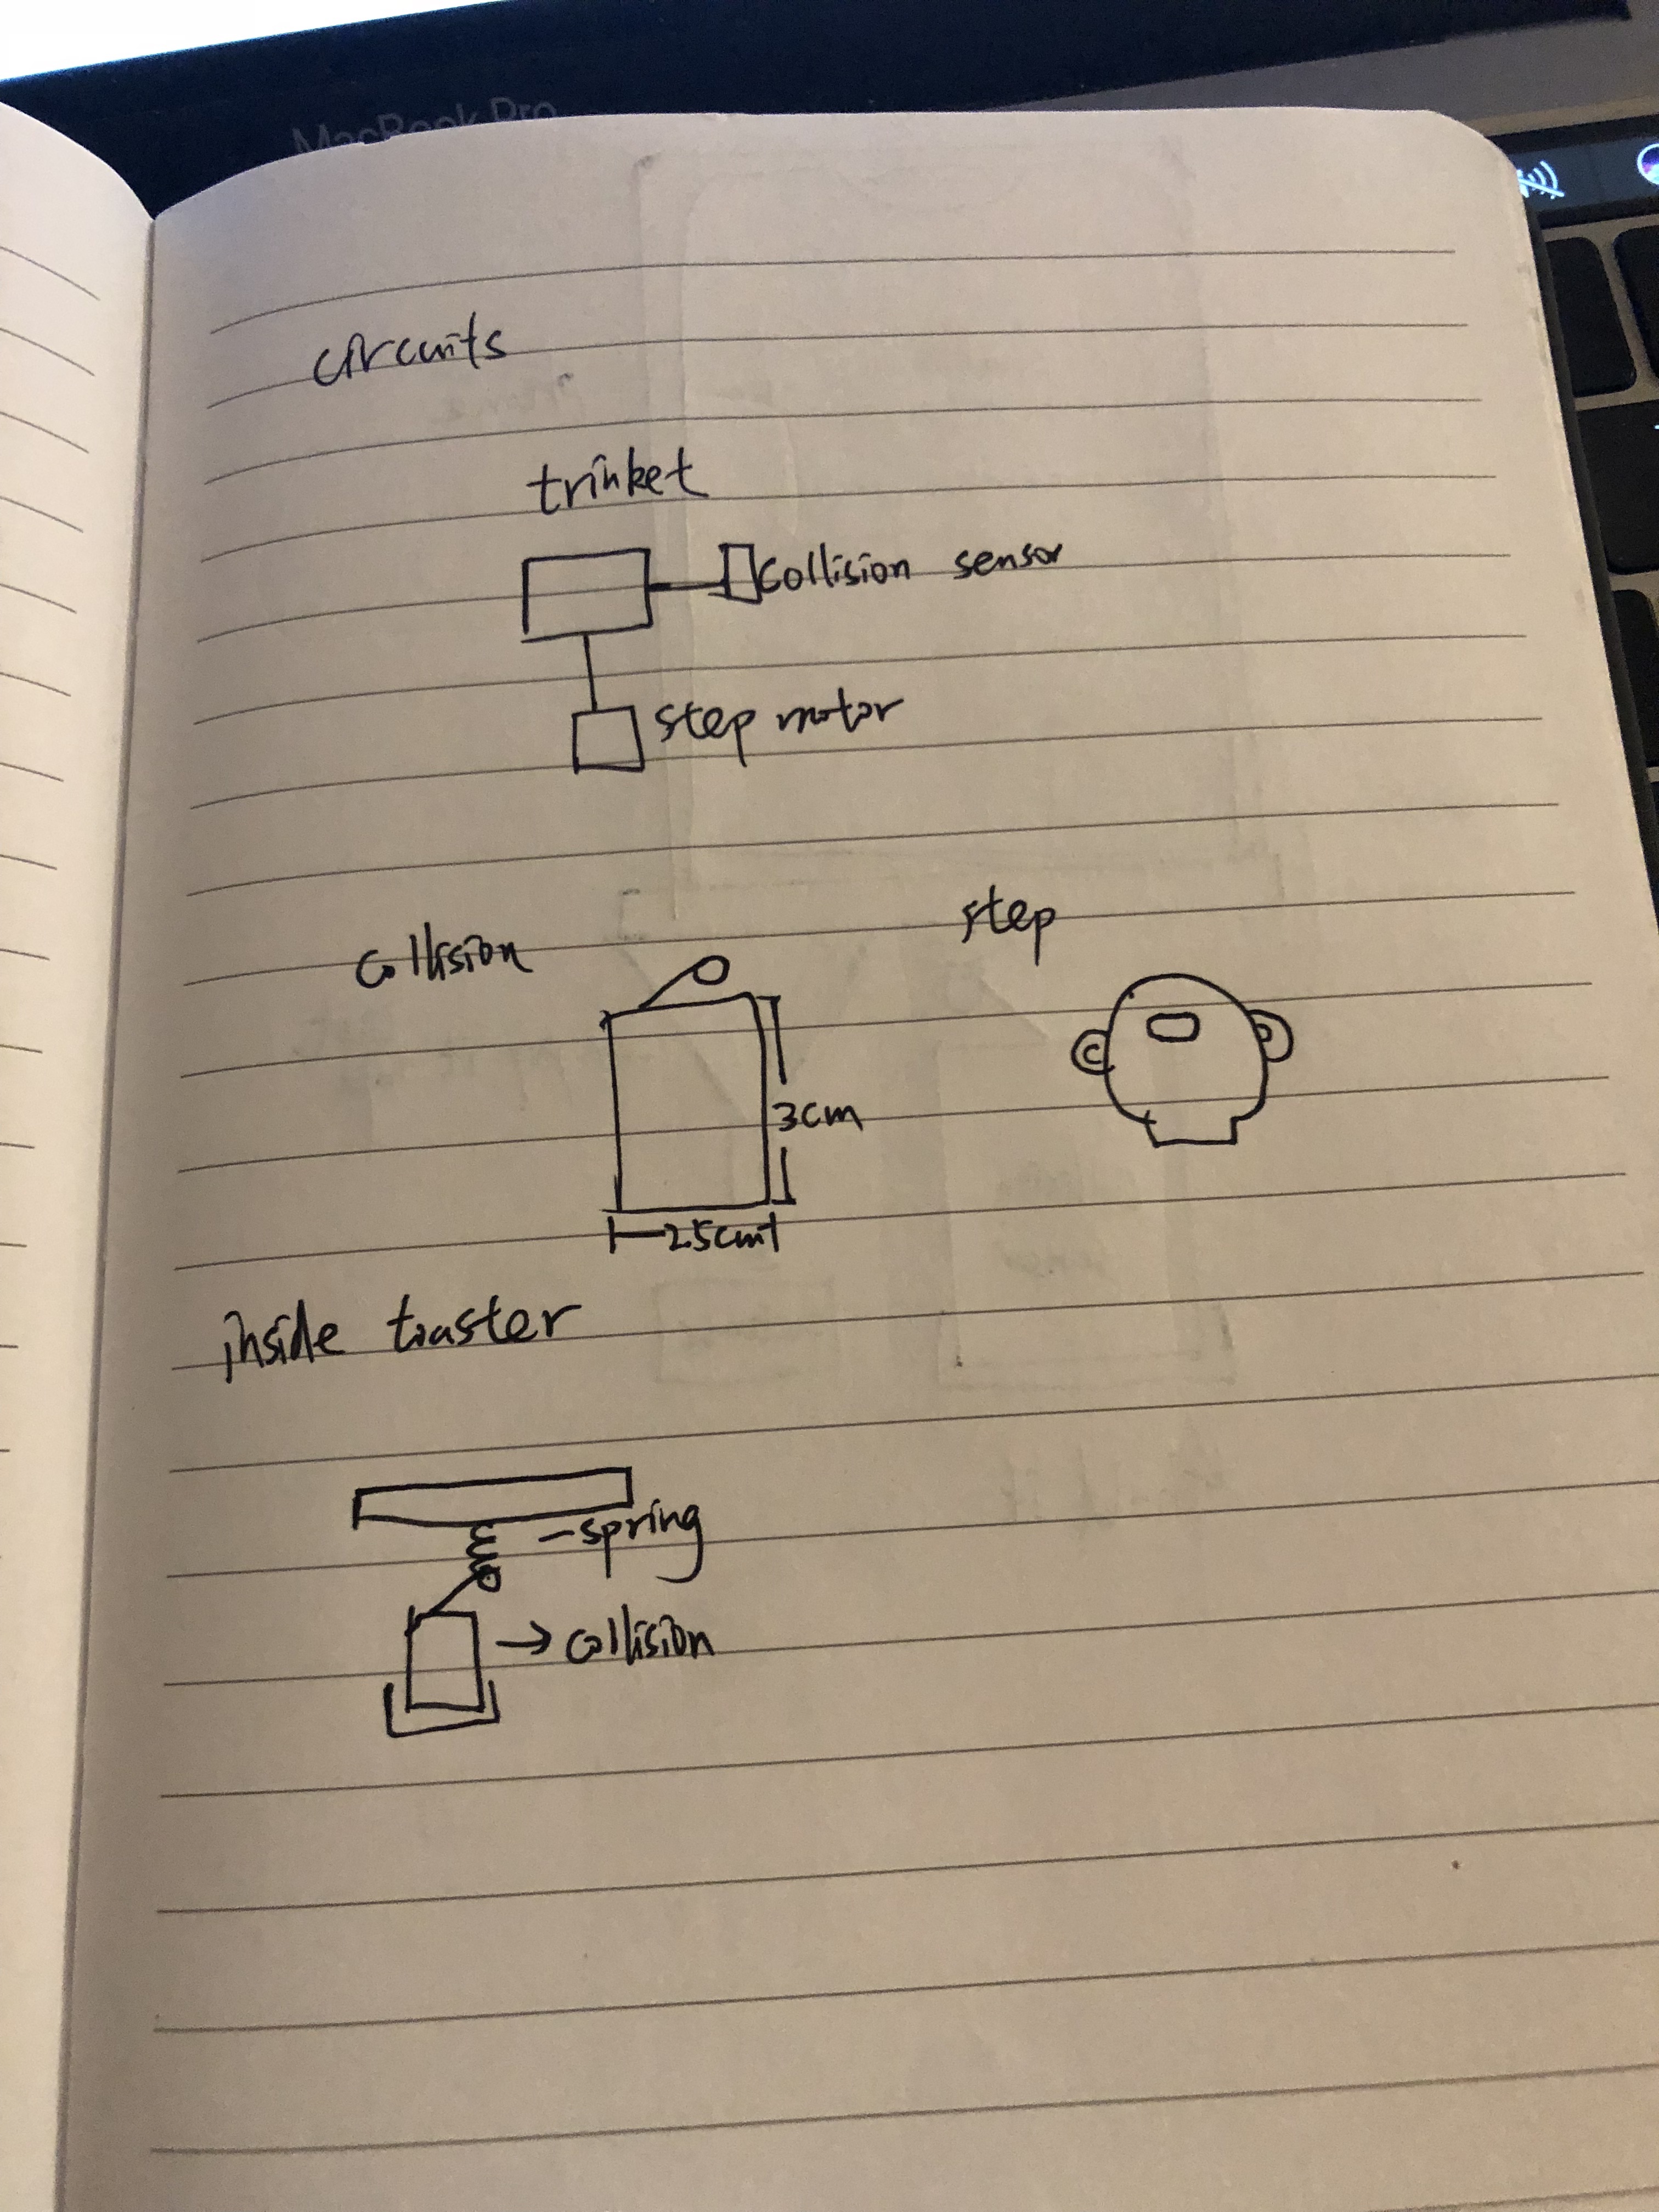 MacBook Pro
circuits
trinket
collision sensor
step motor
step
collision
3cm
2.5cm
inside toaster
-spring
→ collision